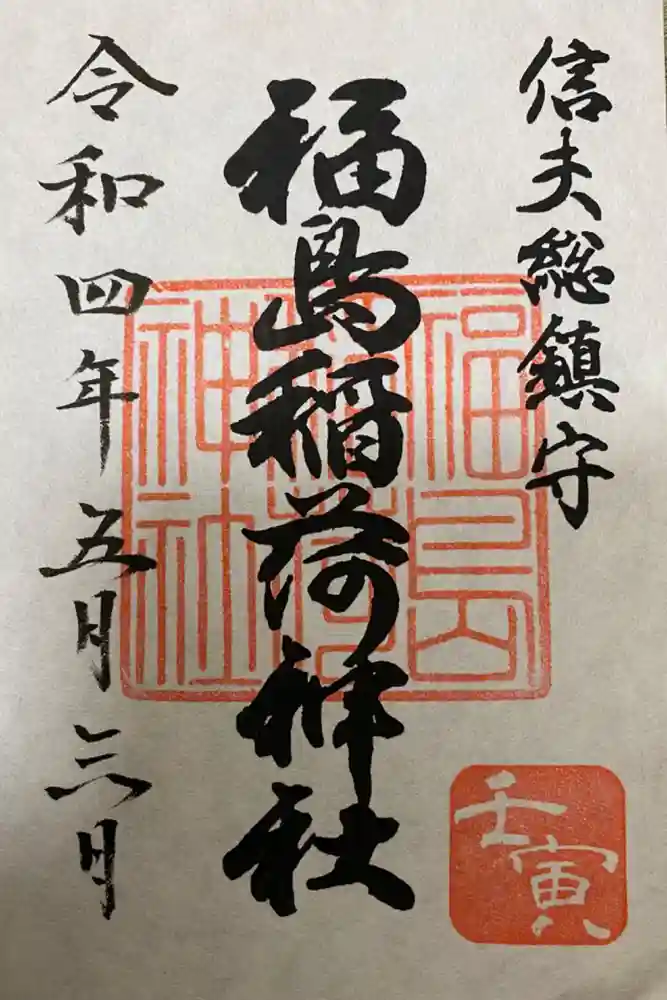 信夫総鎮守
福島稲荷神社
福島稲荷神社
令和四年五月三日
壬寅